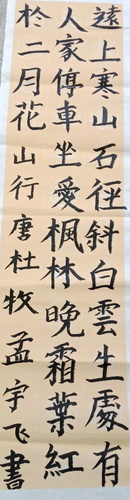 遠上寒山石徑斜白雲生處有
人家停車坐愛楓林晚霜葉紅
於二月花山行唐杜牧孟宇飞書